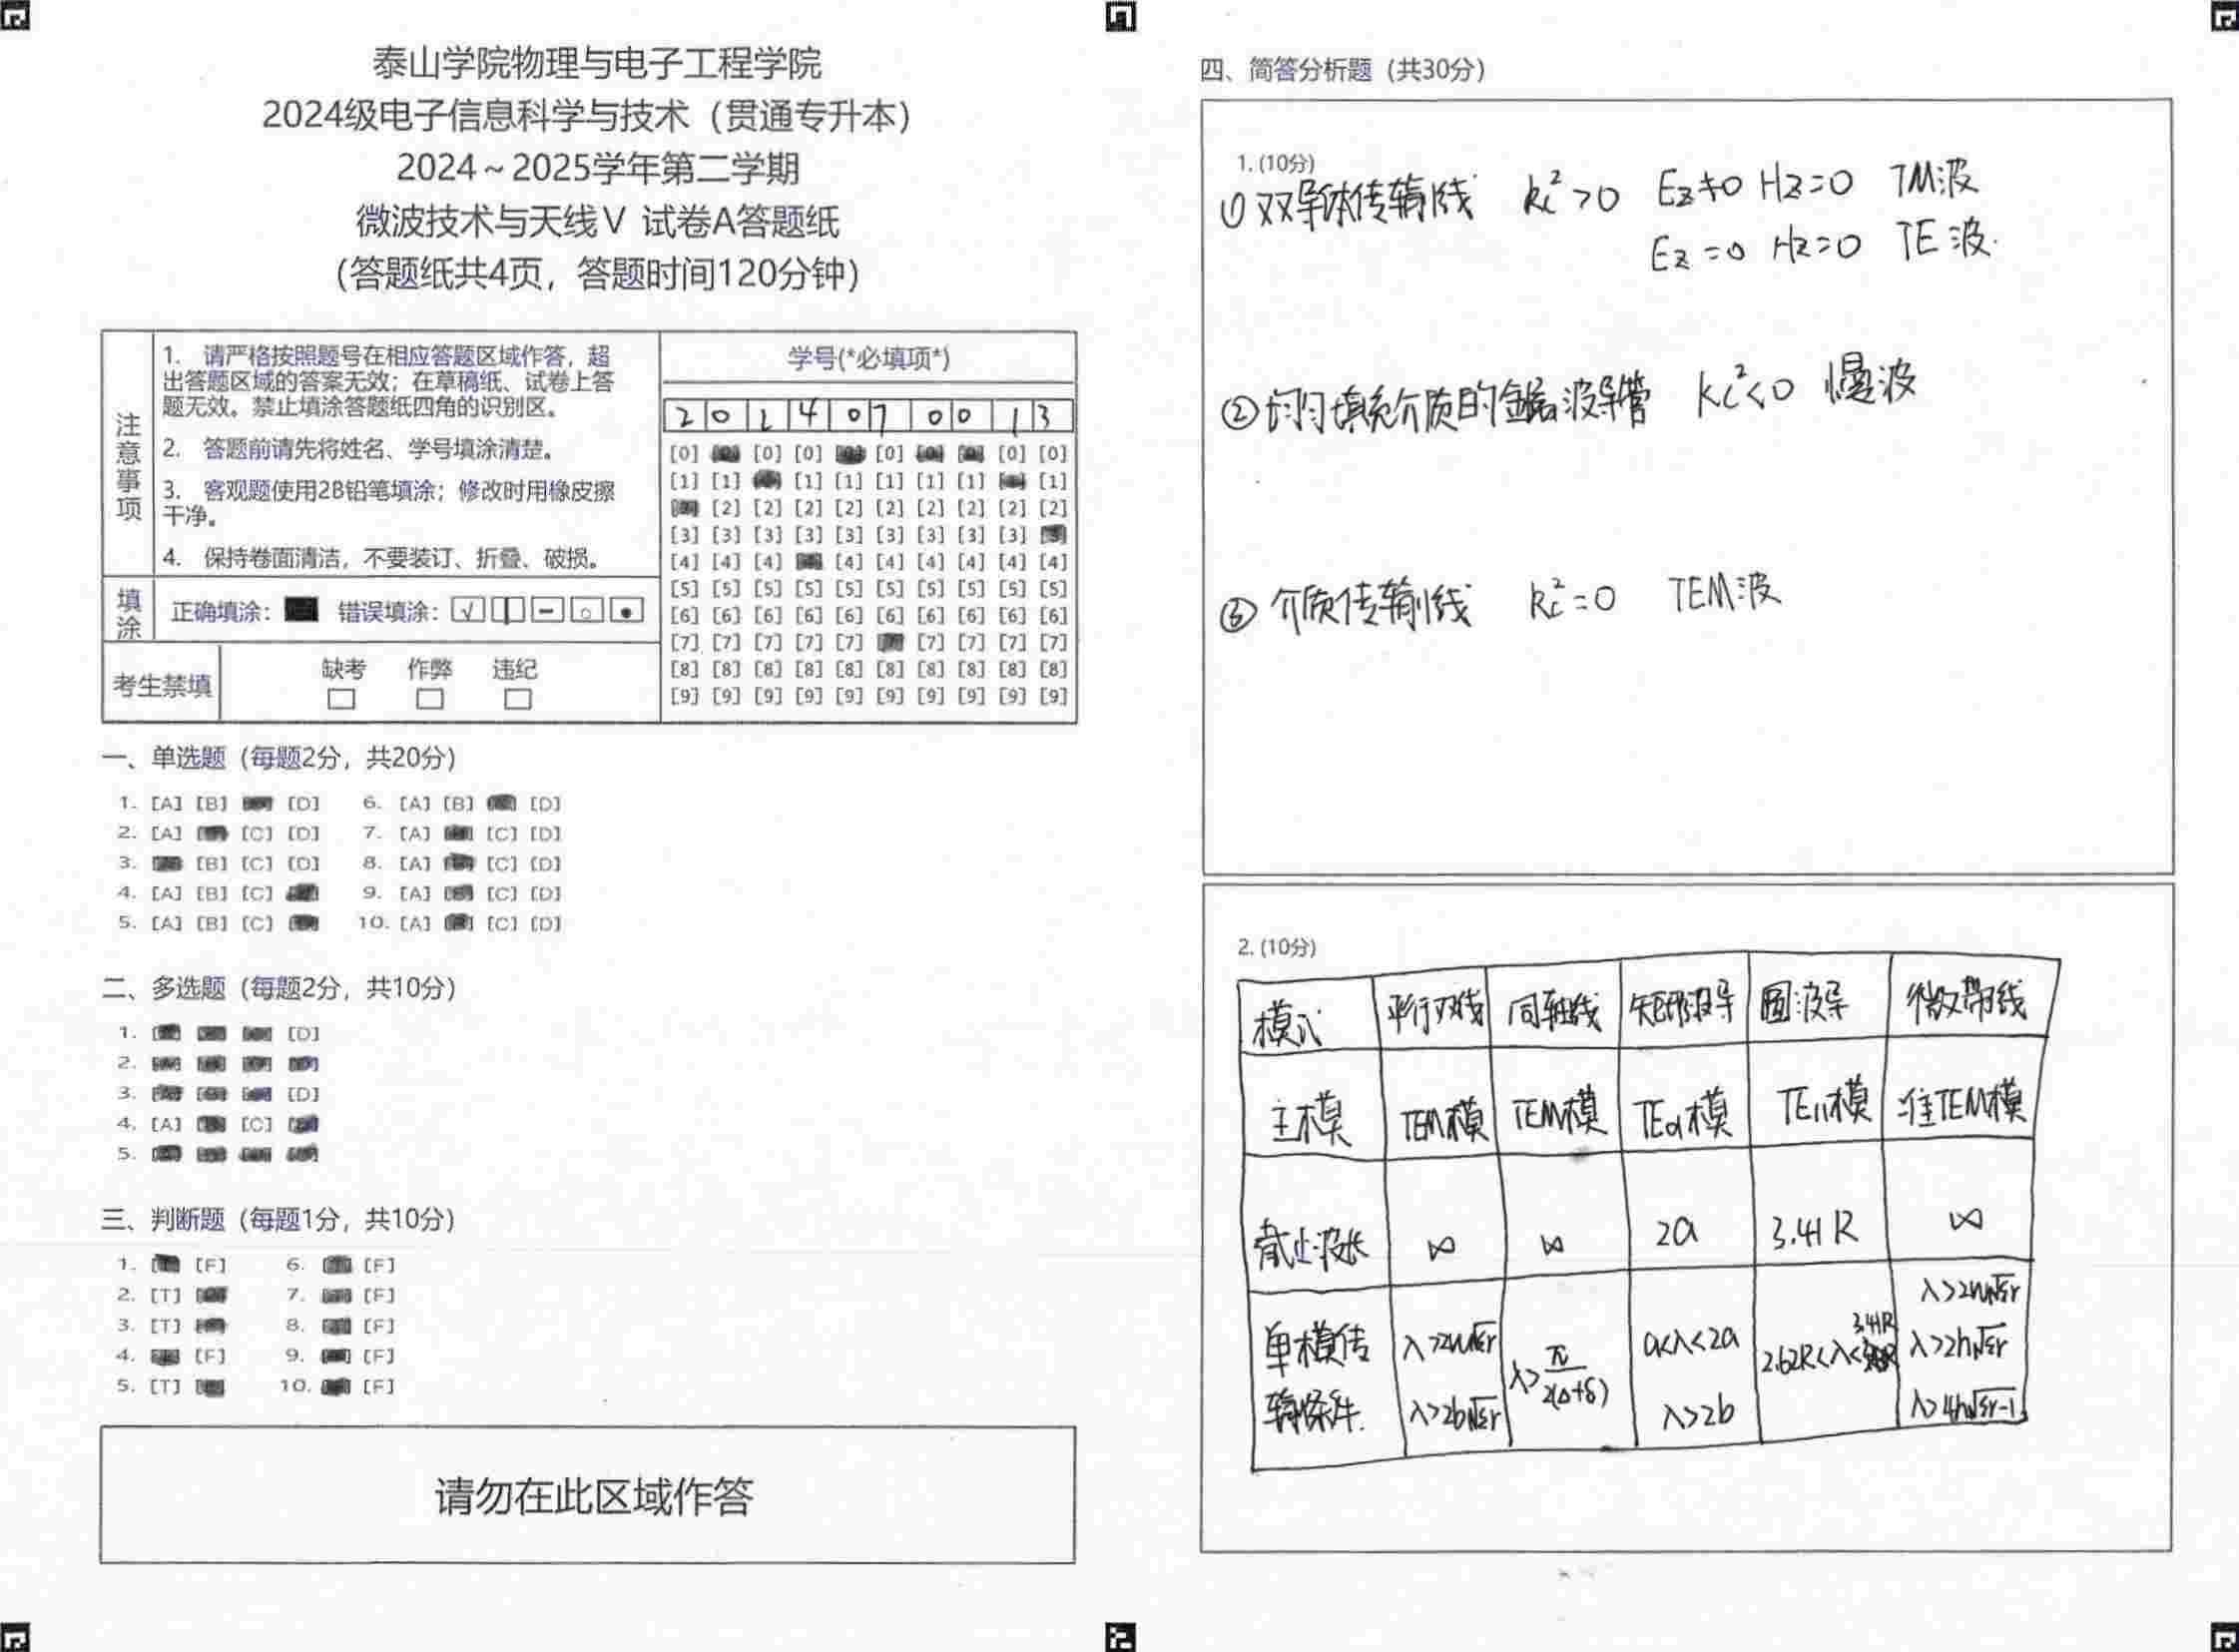 泰山学院物理与电子工程学院
2024级电子信息科学与技术（贯通专升本）
2024～2025学年第二学期
微波技术与天线Ⅴ 试卷A答题纸
（答题纸共4页，答题时间120分钟）
注意事项
1. 请严格按照题号在相应答题区域作答，超
出答题区域的答案无效；在草稿纸、试卷上答
题无效。禁止填涂答题纸四角的识别区。
2. 答题前请先将姓名、学号填涂清楚。
3. 客观题使用2B铅笔填涂；修改时用橡皮擦
干净。
4. 保持卷面清洁，不要装订、折叠、破损。
填涂
正确填涂： 错误填涂：
考生禁填
缺考 作弊 违纪
学号(*必填项*)
2 0 1 4 0 7 0 0 1 3
[0] [0] [0] [0] [0] [0]
[1] [1] [1] [1] [1] [1] [1] [1]
[2] [2] [2] [2] [2] [2] [2] [2] [2]
[3] [3] [3] [3] [3] [3] [3] [3] [3]
[4] [4] [4] [4] [4] [4] [4] [4] [4]
[5] [5] [5] [5] [5] [5] [5] [5] [5] [5]
[6] [6] [6] [6] [6] [6] [6] [6] [6] [6]
[7] [7] [7] [7] [7] [7] [7] [7] [7]
[8] [8] [8] [8] [8] [8] [8] [8] [8] [8]
[9] [9] [9] [9] [9] [9] [9] [9] [9] [9]
一、单选题（每题2分，共20分）
1. [A] [B] [D] 6. [A] [B] [D]
2. [A] [C] [D] 7. [A] [C] [D]
3. [B] [C] [D] 8. [A] [C] [D]
4. [A] [B] [C] 9. [A] [C] [D]
5. [A] [B] [C] 10. [A] [C] [D]
二、多选题（每题2分，共10分）
1. [D]
2.
3. [D]
4. [A] [C]
5.
三、判断题（每题1分，共10分）
1. [F] 6. [F]
2. [T] 7. [F]
3. [T] 8. [F]
4. [F] 9. [F]
5. [T] 10. [F]
请勿在此区域作答
四、简答分析题（共30分）
1. (10分)
① 双导体传输线 kc²>0 Ez≠0 Hz=0 TM波
Ez=0 Hz=0 TE波.
② 均匀填充介质的金属波导管 kc²<0 慢波
③ 介质传输线 kc²=0 TEM波
2. (10分)
模式 平行双线 同轴线 矩形波导 圆波导 微带线
主模 TEM模 TEM模 TE01模 TE11模 准TEM模
截止波长 ∞ ∞ 2a 3.41R ∞
单模传输条件. λ>2w√εr λ>2b√εr λ>π/2(Δ+δ) a<λ<2a λ>2b 2.62R<λ<3.41R λ>2w√εr λ>2h√εr λ>4h√εr-1